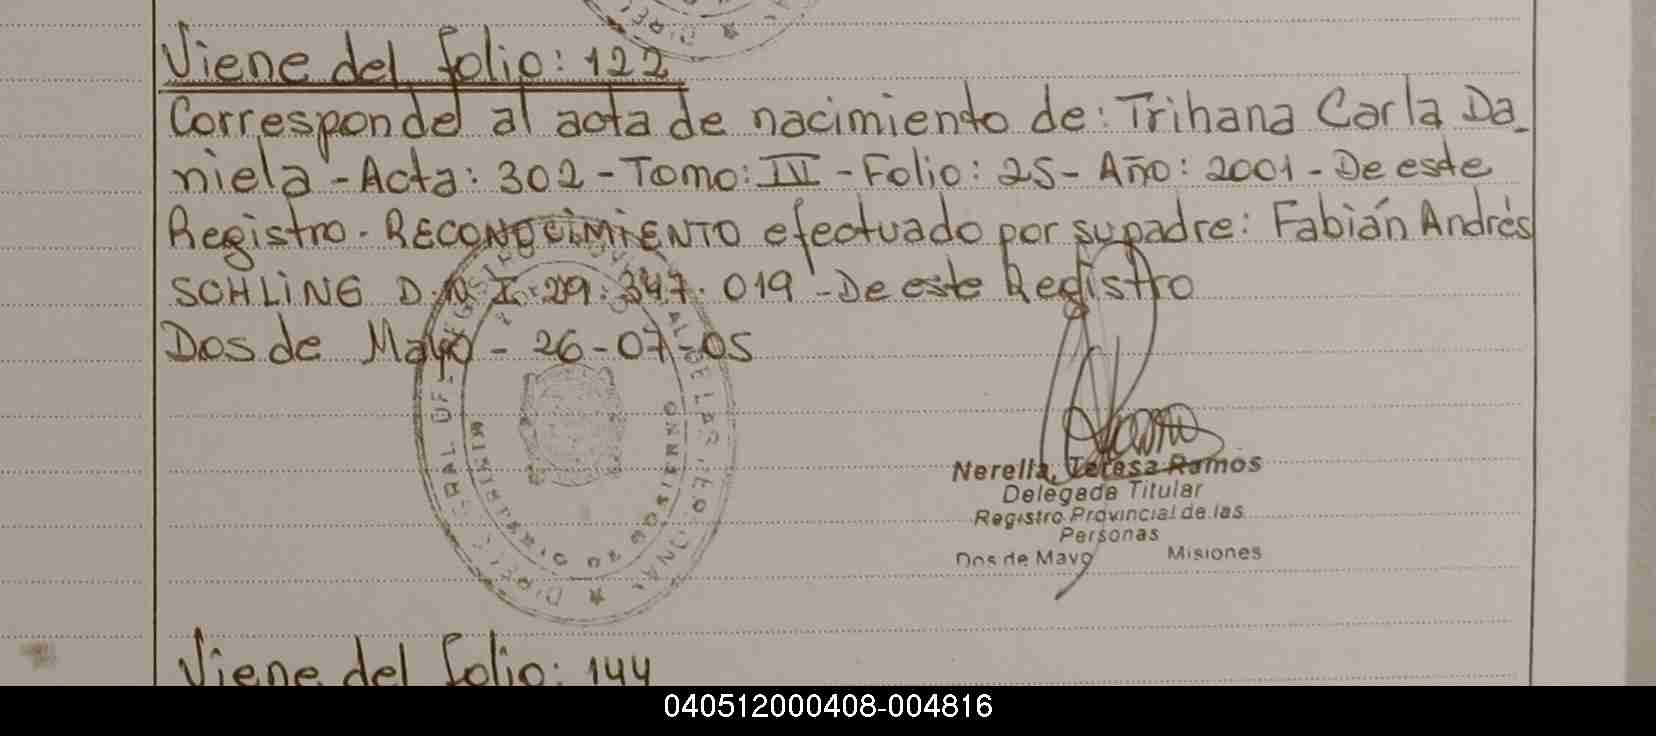 Viene del folio: 122
Corresponde al acta de nacimiento de: Trihana Carla Da-
niela - Acta: 302 - Tomo: IV - Folio: 25 - Año: 2001 - De este
Registro. RECONOCIMIENTO efectuado por su padre: Fabián Andrés
SCHLING D.N.I: 29.347.019 - De este Registro
Dos de Mayo - 26-07-05
Nerella, Teresa Ramos
Delegada Titular
Registro Provincial de las
Personas
Dos de Mayo Misiones
Viene del folio: 144
040512000408-004816